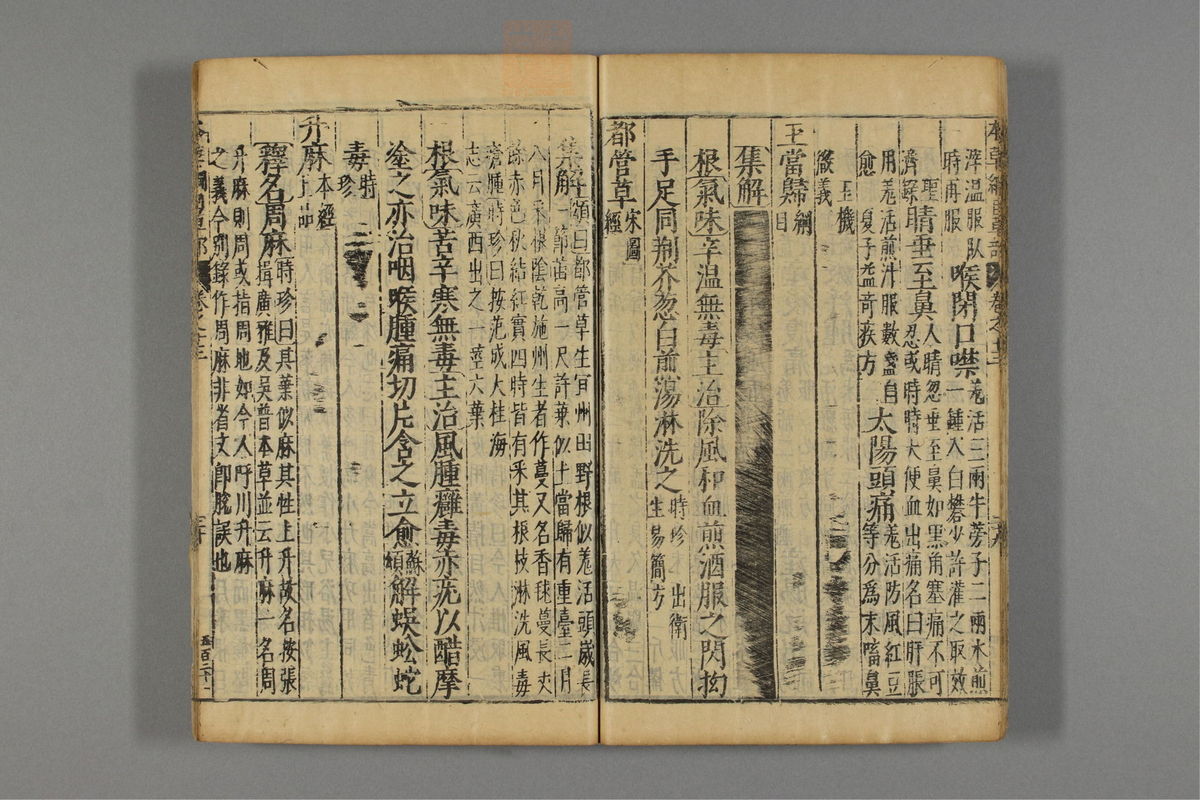 滓溫服臥時再服
喉閉口噤羌活三兩牛蒡子二兩水煎一鍾入白礬少許灌之取效
濟聖錄
睛垂至鼻人睛忽垂至鼻如黑角塞痛不可忍或時時大便血出痛名曰肝脹
用羌活煎汁服數盞自愈夏子益奇疾方
太陽頭痛羌活防風紅豆等分爲末㗜鼻
玉機微義
土當歸綱目
集解
根氣味辛溫無毒主治除風和血煎酒服之閃拗
手足同荊芥葱白煎湯淋洗之時珍出衛生易簡方
都管草宋圖經
集解頌曰都管草生宜州田野根似羌活頭歲長一節苗高一尺許葉似土當歸有重臺二月
八月采根陰乾施州生者作蔓又名香毬蔓長丈餘赤色秋結紅實四時皆有采其根枝淋洗風毒
瘡腫時珍曰按范成大桂海志云廣西出之一莖六葉
根氣味苦辛寒無毒主治風腫癰毒赤疣以醋摩
塗之亦治咽喉腫痛切片含之立愈蘇頌解蜈蚣蛇
毒時珍
升麻本經上品
釋名周麻時珍曰其葉似麻其性上升故名按張揖廣雅及吳普本草並云升麻一名周
升麻則周或指周地如今人呼川升麻之義今別錄作周麻非省文卽脫誤也